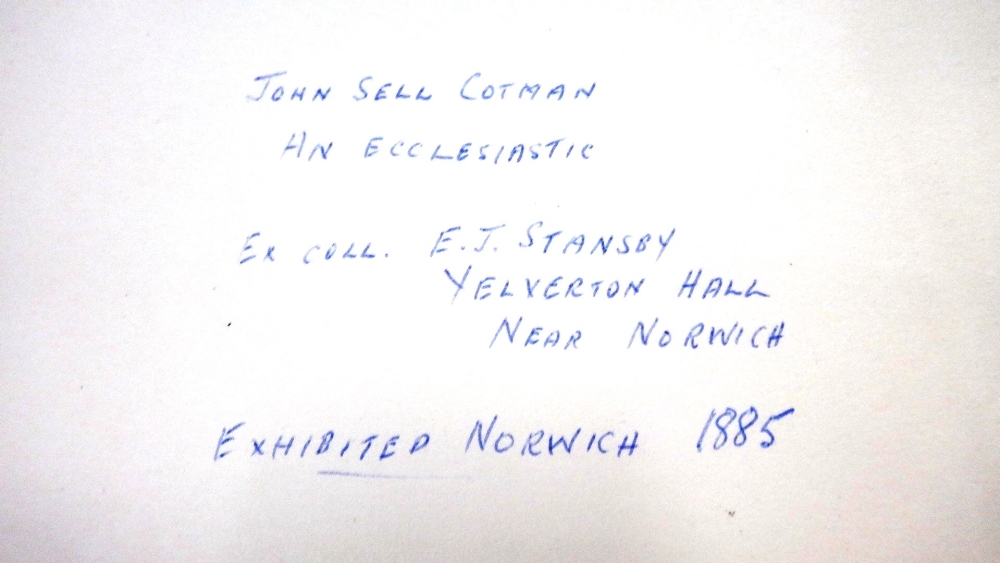 JOHN SELL COTMAN
AN ECCLESIASTIC
EX COLL. E.J. STANSBY
YELVERTON HALL
NEAR NORWICH
EXHIBITED NORWICH 1885